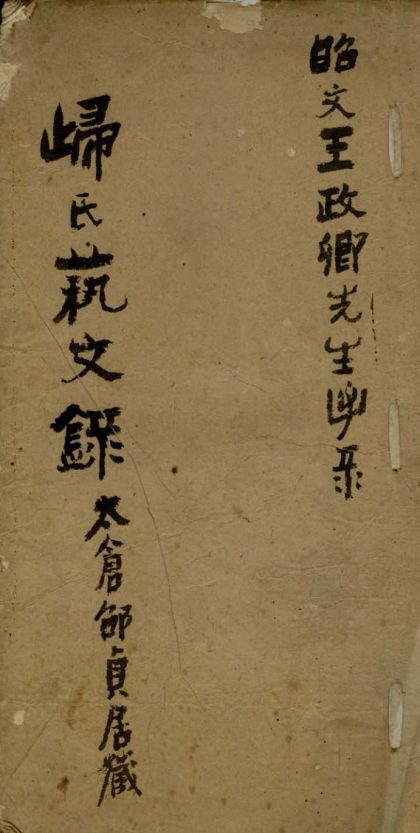 昭文王政卿先生手录
歸氏藝文錄 太倉邵貞居藏